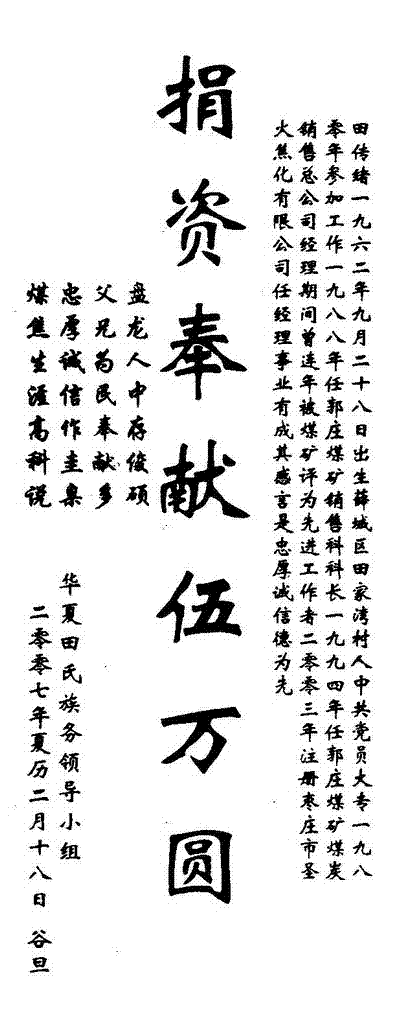 田传绪一九六二年九月二十八日出生薛城区田家湾村人中共党员大专一九八
零年参加工作一九八八年任郭庄煤矿销售科科长一九九四年任郭庄煤矿煤炭
销售总公司经理期间曾连年被煤矿评为先进工作者二零零三年注册枣庄市圣
火焦化有限公司任经理事业有成其感言是忠厚诚信德为先
捐资奉献伍万圆
盘龙人中存俊硕
父兄为民奉献多
忠厚诚信作圭臬
煤焦生涯高科说
华夏田氏族务领导小组
二零零七年夏历二月十八日 谷旦